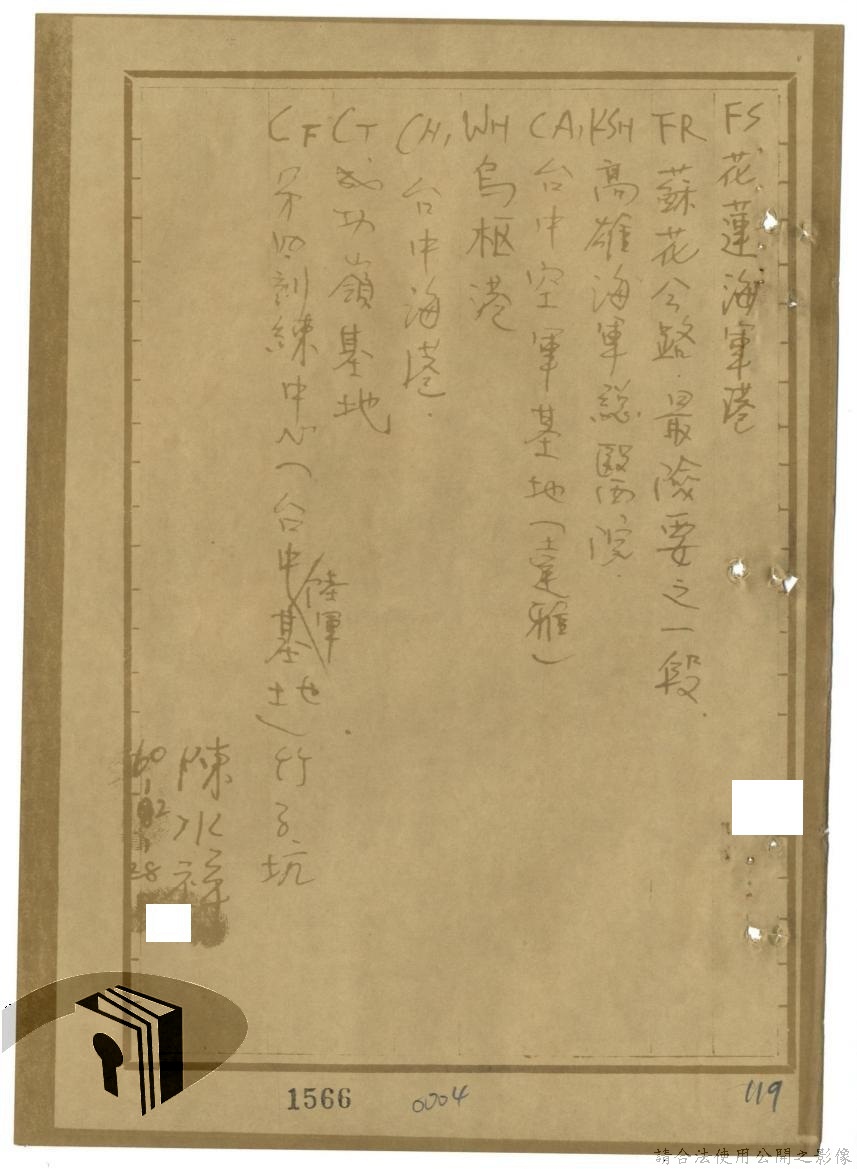 FS 花蓮海軍港
FR 蘇花公路.最險要之一段.
KSH 高雄海軍総醫院.
CA, 台中空軍基地(清雅)
WH 烏枢港
CH, 台中海港.
CT 成功嶺基地
CF 第四訓練中心(台中陸軍基地)竹子坑.
陳水祥
60,02,28
1566
0004
119
請合法使用公開之影像